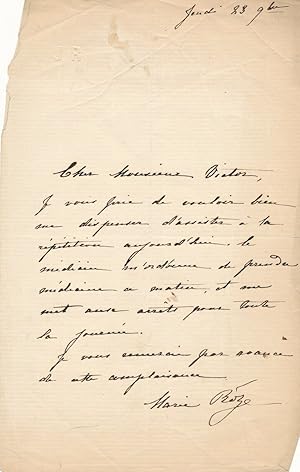 Jeudi 23 9bre
Cher Monsieur Victor,
Je vous prie de vouloir bien
me dispenser d'assister à la
répétition aujourd'hui, le
médecin m'ordonne de prendre
médecine ce matin, et me
met aux arrêts pour toute
la journée.
Je vous remercie par avance
de votre complaisance.
Marie Rôze